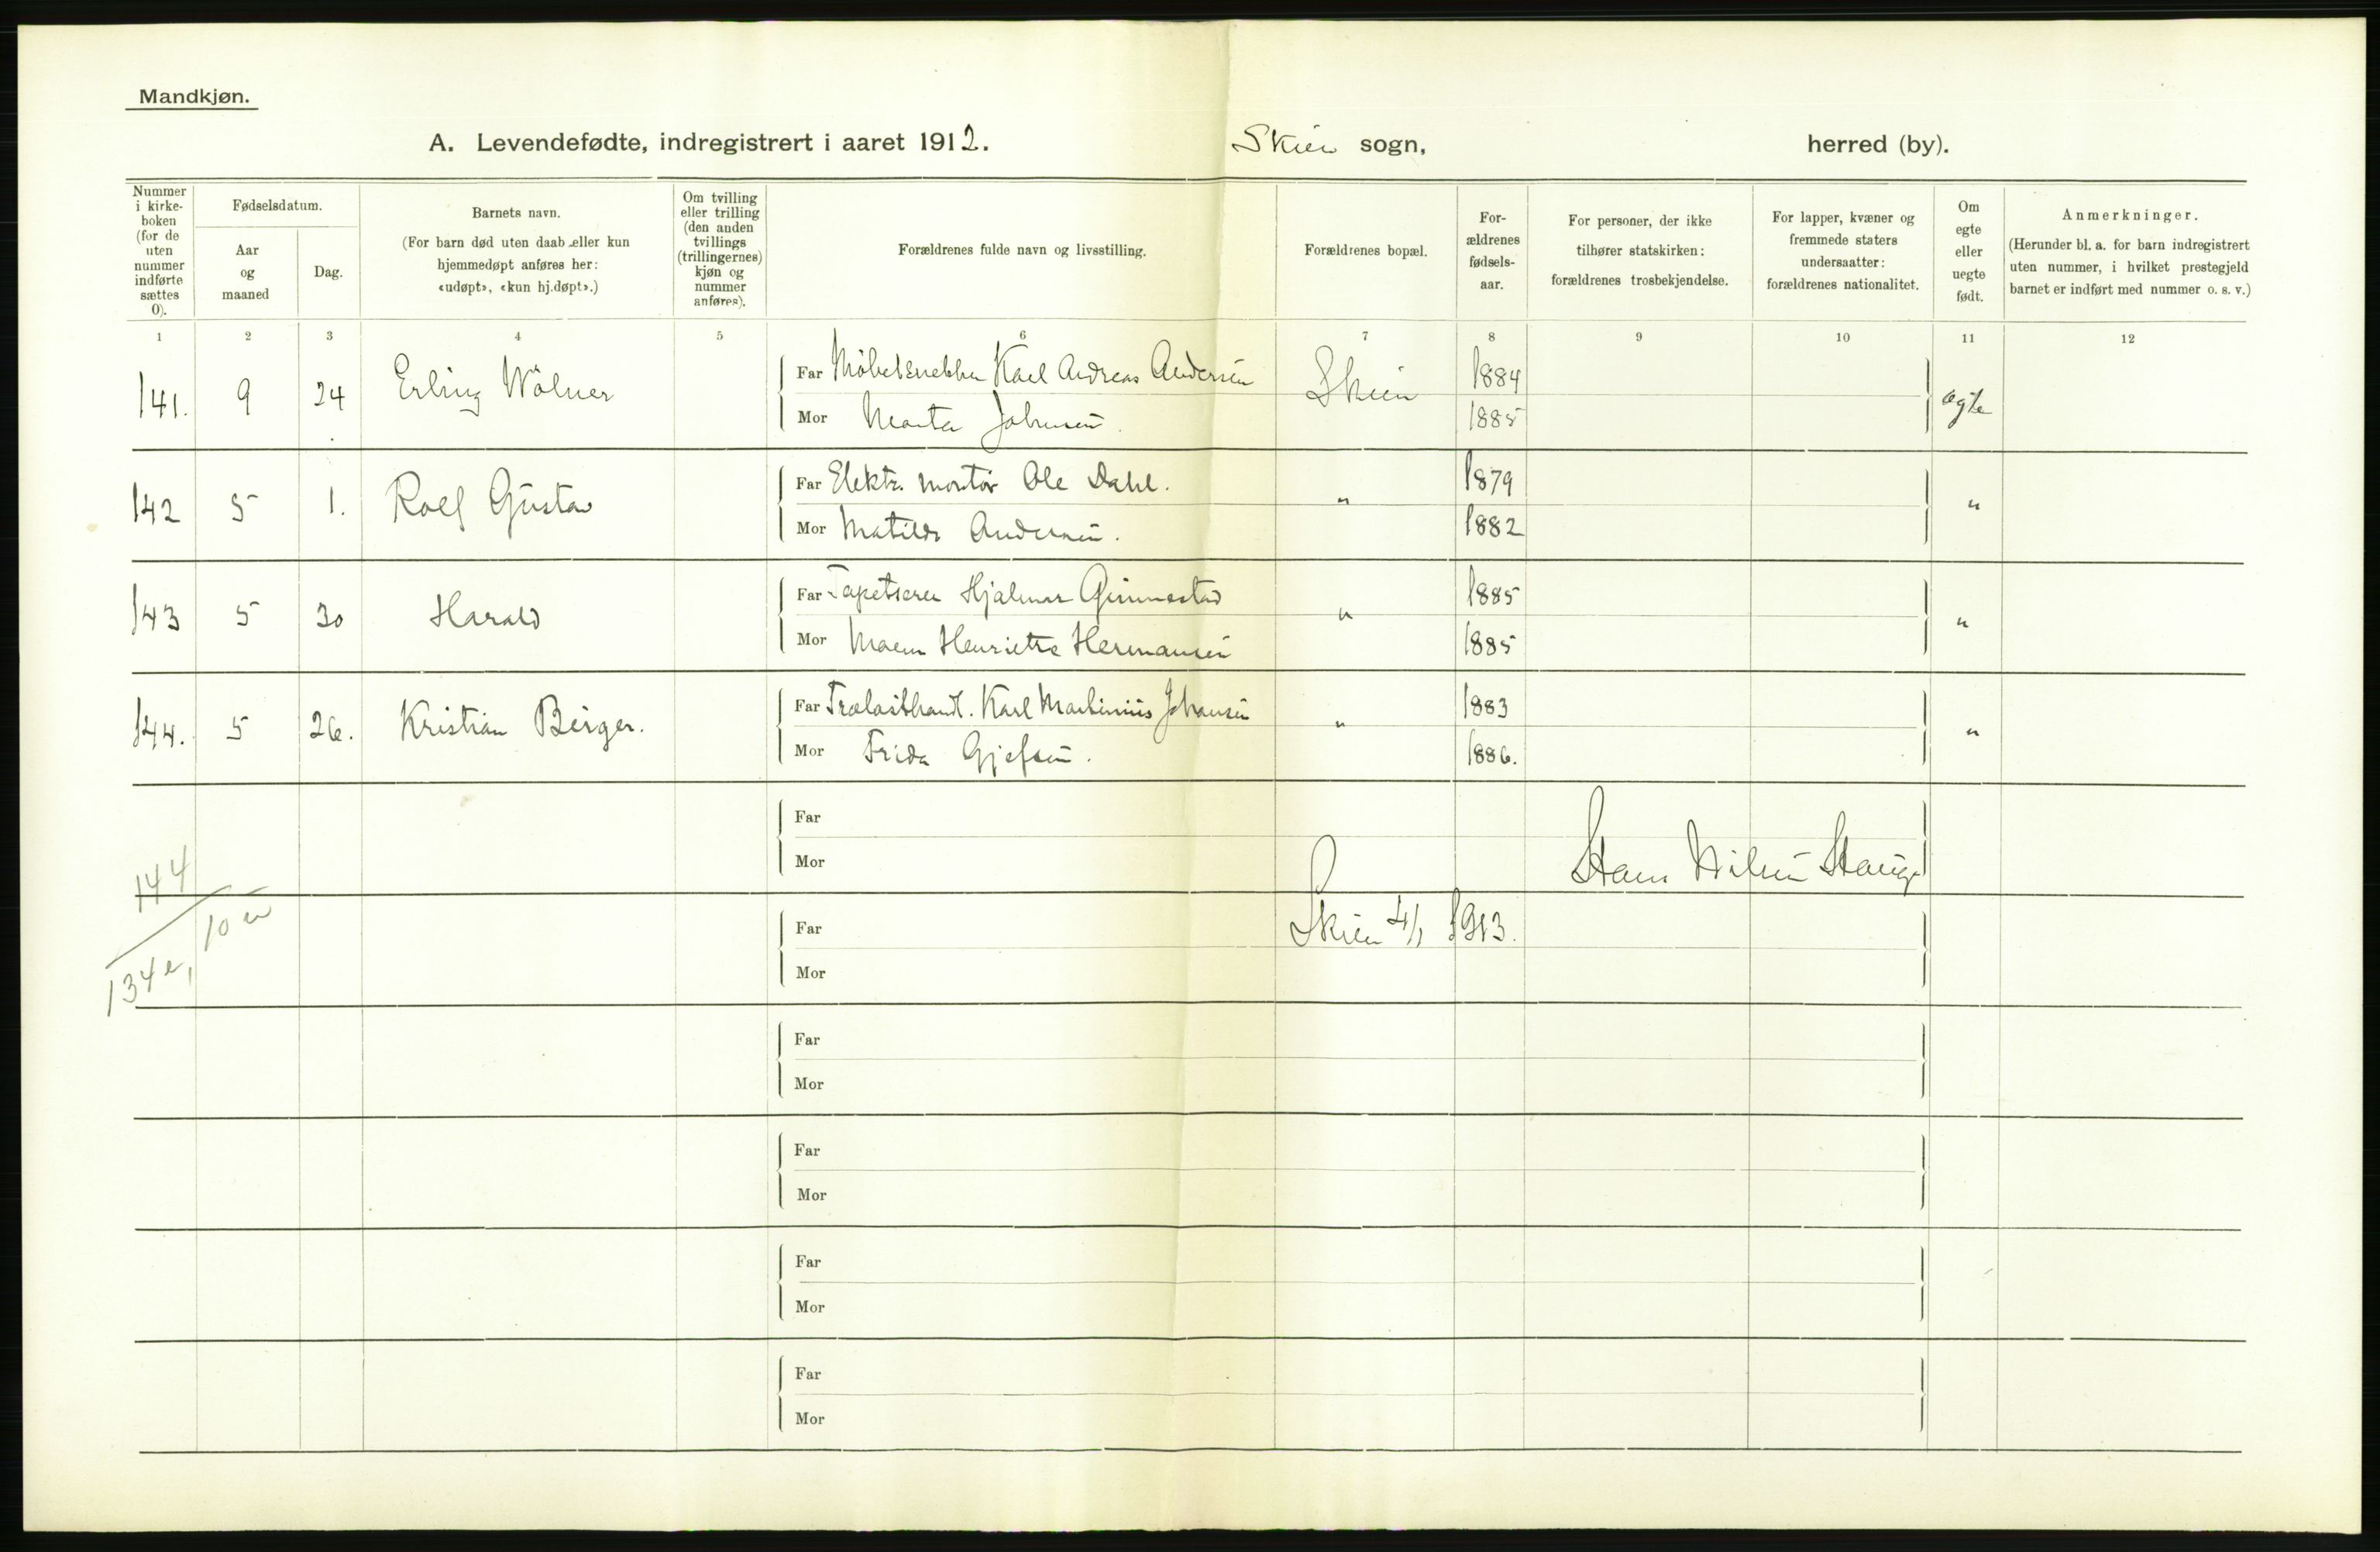 Mandkjøn.
A. Levendefødte, indregistrert i aaret 1912. Skien sogn, herred (by).
Nummer i kirkeboken (for de uten nummer indførte sættes 0).
Fødselsdatum.
Aar og maaned
Dag.
Barnets navn.
(For barn død uten daab eller kun hjemmedøpt anføres her: «udøpt», «kun hj.døpt».)
Om tvilling eller trilling (den anden tvillings (trillingernes) kjøn og nummer anføres).
Forældrenes fulde navn og livsstilling.
Forældrenes bopæl.
For-ældrenes fødsels-aar.
For personer, der ikke tilhører statskirken: forældrenes trosbekjendelse.
For lapper, kvæner og fremmede staters undersaatter: forældrenes nationalitet.
Om egte eller uegte født.
Anmerkninger.
(Herunder bl. a. for barn indregistrert uten nummer, i hvilket prestegjeld barnet er indført med nummer o. s. v.)
1 2 3 4 5 6 7 8 9 10 11 12
141. 9 24 Erling Wölner Far Møbelsnekker Karl Andreas Andersen Skien 1884 egte
Mor Marta Johnsen 1885
142 5 1. Rolf Gustav Far Elektr. montør Ole Dahl. " 1879 "
Mor Matilde Andersen. 1882
143 5 30 Harald Far Tapetserer Hjalmar Gimmestad " 1885 "
Mor Henriette Hermansen 1885
144. 5 26. Kristian Birger. Far Trælasthandl. Karl Martinius Johansen " 1883 "
Mor Frida Gjefsen. 1886.
Far
Mor
Hans Nilsen Hauge
144
134 e, 10 u
Far Skien 4/1 1913.
Mor
Far
Mor
Far
Mor
Far
Mor
Far
Mor